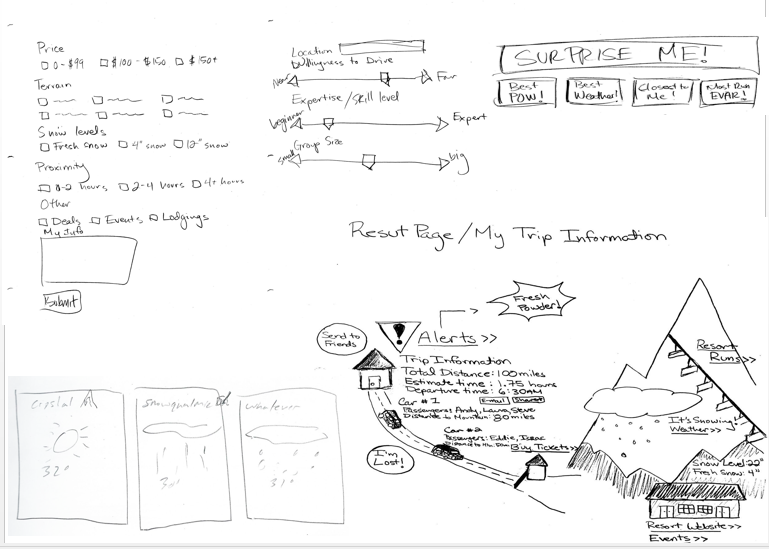 Price
0 - $99 $100 - $150 $150+
Terrain
Snow levels
Fresh snow 4" snow 12" snow
Proximity
0-2 hours 2-4 hours 4+ hours
Other
Deals Events Lodgings
My Info
Submit
Location
Willingness to Drive
Near Farr
Expertise/skill level
beginner Expert
Group Size
small big
SURPRISE ME!
Best POW!
Best Weather!
Closed to Me!
Most Run EVAR!
Resut Page/My Trip Information
Fresh Powder!
Send to Friends
!
Alerts >>
Trip Information
Total Distance: 100 miles
Estimate time: 1.75 hours
Departure time: 6:30AM
Car #1 E-mail Share
Passengers: Andy, Laura, Steve
Distance to Mountain: 80 miles
Car #2
Passengers: Eddie, Isaac
Distance to
Buy Tickets >>
I'm Lost!
Resort Runs >>
It's Snowing!
Weather >>
Snow Level: 22"
Fresh Snow: 4"
Resort Website >>
Events >>
Crystal
32°
Snoqualmie
30°
whatever
31°